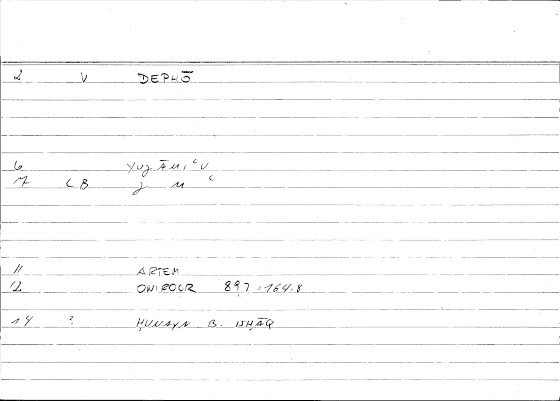 2 V DEPHŌ
6 YUJĀMIʿU
7 CB J M ʿ
11 ARTEM
12 ONIROCR 89,7 = 164.8
14 ? ḤUNAYN B. ISḤĀQ